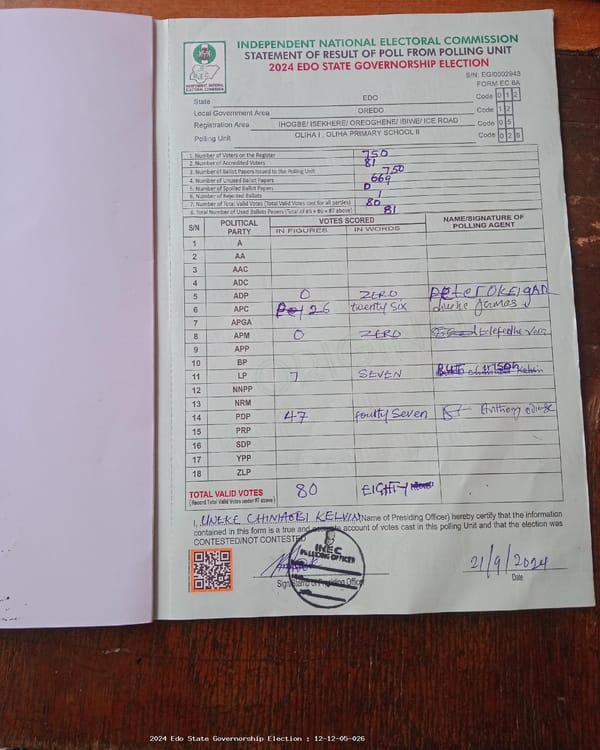 INDEPENDENT NATIONAL ELECTORAL COMMISSION
STATEMENT OF RESULT OF POLL FROM POLLING UNIT
2024 EDO STATE GOVERNORSHIP ELECTION
INDEPENDENT NATIONAL
ELECTORAL COMMISSION
S/N: EG/0002943
FORM EC 8A
State EDO Code 0 1 2
Local Government Area OREDO Code 1 2
Registration Area IHOGBE/ ISEKHERE/ OREOGHENE/ IBIWE/ ICE ROAD Code 0 5
Polling Unit OLIHA I , OLIHA PRIMARY SCHOOL II Code 0 2 6
1. Number of Voters on the Register 750
2. Number of Accredited Voters 81
3. Number of Ballot Papers Issued to the Polling Unit 750
4. Number of Unused Ballot Papers 669
5. Number of Spoiled Ballot Papers 0
6. Number of Rejected Ballots 1
7. Number of Total Valid Votes (Total Valid Votes cast for all parties) 80
8. Total Number of Used Ballots Papers (Total of #5 + #6 + #7 above) 81
S/N POLITICAL PARTY VOTES SCORED NAME/SIGNATURE OF POLLING AGENT
IN FIGURES IN WORDS
1 A
2 AA
3 AAC
4 ADC
5 ADP 0 ZERO Peter
6 APC 26 twenty Six
7 APGA
8 APM 0 ZERO
9 APP
10 BP
11 LP 7 SEVEN Kelvin
12 NNPP
13 NRM
14 PDP 47 fourty Seven Anthony
15 PRP
16 SDP
17 YPP
18 ZLP
TOTAL VALID VOTES 80 EIGHTY
(Record Total Valid Votes under #7 above)
I, UNEKE CHINAOBI KELVIN (Name of Presiding Officer) hereby certify that the information
contained in this form is a true and account of votes cast in this polling Unit and that the election was
CONTESTED/NOT CONTESTED
INEC
PRESIDING OFFICER
21/9/2024
Date
2024 Edo State Governorship Election : 12-12-05-026